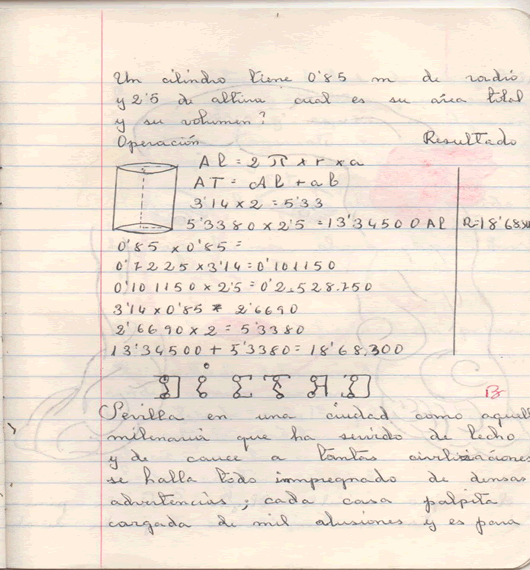 Un cilindro tiene 0'85 m de radio
y 2'5 de altura cual es su area total
y su volumen?
Operación Resultado
A l = 2 π x r x a
A T = A l + a b
3'14 x 2 = 5'33
5'3380 x 2'5 = 13'34500 A l R=18'68300
0'85 x 0'85 =
0'7225 x 3'14 = 0'101150
0'101150 x 2'5 = 0'2.528.750
3'14 x 0'85 = 2'6690
2'6690 x 2 = 5'3380
13'34500 + 5'3380 = 18'68.300
DICTAD
B
Sevilla en una ciudad como aquell
milenaria que ha servido de lecho
y de cauce a tantas civilizaciones
se halla todo impregnado de densas
advertencias; cada casa palpita
cargada de mil alusiones y es para